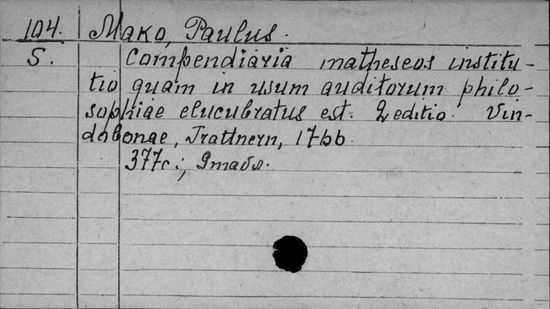 104. Mako, Paulus.
S. Compendiaria matheseos institu-
tio quam in usum auditorum philo-
sophiae elucubratus est. 2 editio. Vin-
dobonae, Trattnern, 1766.
377c.;